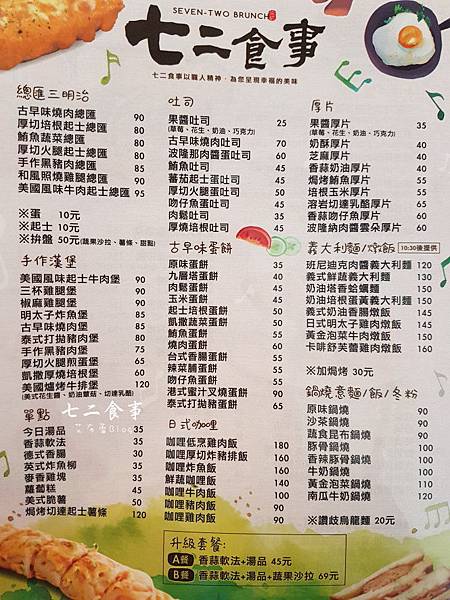 SEVEN-TWO BRUNCH
七二食事
七二食事以職人精神，為您呈現幸福的美味
總匯三明治
古早味燒肉總匯 90
厚切培根起士總匯 90
鮪魚蔬菜總匯 90
厚切火腿起士總匯 90
手作黑豬總匯 85
和風照燒雞腿總匯 90
美國風味牛肉起士總匯 95
※蛋 10元
※起士 10元
※拚盤 50元(蔬果沙拉、薯條、甜點)
手作漢堡
美國風味起士牛肉堡 90
三杯雞腿堡 90
椒麻雞腿堡 90
明太子炸魚堡 85
古早味燒肉堡 85
泰式打拋豬肉堡 80
手作黑豬肉堡 75
厚切火腿煎蛋堡 60
凱撒厚燒培根堡 60
美國爐烤牛排堡 120
(美式花生醬、奶油蘑菇、切達乳酪)
單點
今日湯品 35
香蒜軟法 35
德式香腸 30
英式炸魚柳 35
麥香雞塊 35
蘿蔔糕 45
美式脆薯 50
焗烤切達起士薯條 120
吐司
果醬吐司 25
(草莓、花生、奶油、巧克力)
古早味燒肉吐司 70
波隆那肉醬蛋吐司 60
鮪魚吐司 45
蕃茄起士蛋吐司 45
厚切火腿蛋吐司 50
吻仔魚蛋吐司 50
肉鬆吐司 35
厚燒培根蛋吐司 45
古早味蛋餅
原味蛋餅 35
九層塔蛋餅 40
肉鬆蛋餅 45
玉米蛋餅 45
起士培根蛋餅 50
凱撒蔬菜蛋餅 50
鮪魚蛋餅 50
燒肉蛋餅 60
台式香腸蛋餅 50
辣菜脯蛋餅 50
吻仔魚蛋餅 55
港式蜜汁叉燒蛋餅 90
泰式打拋豬蛋餅 65
日式咖哩
咖哩低烹雞肉飯 180
咖哩厚切炸豬排飯 160
咖哩炸魚飯 140
鮮蔬咖哩飯 140
咖哩牛肉飯 100
咖哩豬肉飯 90
咖哩雞肉飯 90
升級套餐:
A餐 香蒜軟法+湯品 45元
B餐 香蒜軟法+湯品+蔬果沙拉 69元
厚片
果醬厚片 35
(草莓、花生、奶油、巧克力)
奶酥厚片 40
芝麻厚片 40
香蒜奶油厚片 40
焗烤鮪魚厚片 55
培根玉米厚片 55
溶岩切達乳酪厚片 65
香蒜吻仔魚厚片 65
波隆納肉醬雲朵厚片 65
義大利麵/燉飯 10:30後提供
班尼迪克肉醬義大利麵 120
義式鮮蔬義大利麵 130
奶油塔香蛤蠣麵 150
奶油培根蛋黃義大利麵 150
義式奶油香腸燉飯 150
日式明太子雞肉燉飯 150
黃金泡菜牛肉燉飯 150
卡啡舒芙蕾雞肉燉飯 160
※加焗烤 30元
鍋燒意麵/飯/冬粉
原味鍋燒 90
沙茶鍋燒 90
蔬食昆布鍋燒 90
豚骨鍋燒 100
香辣豚骨鍋燒 100
牛奶鍋燒 100
黃金泡菜鍋燒 110
南瓜牛奶鍋燒 120
※讚歧烏龍麵 20元
七二食事